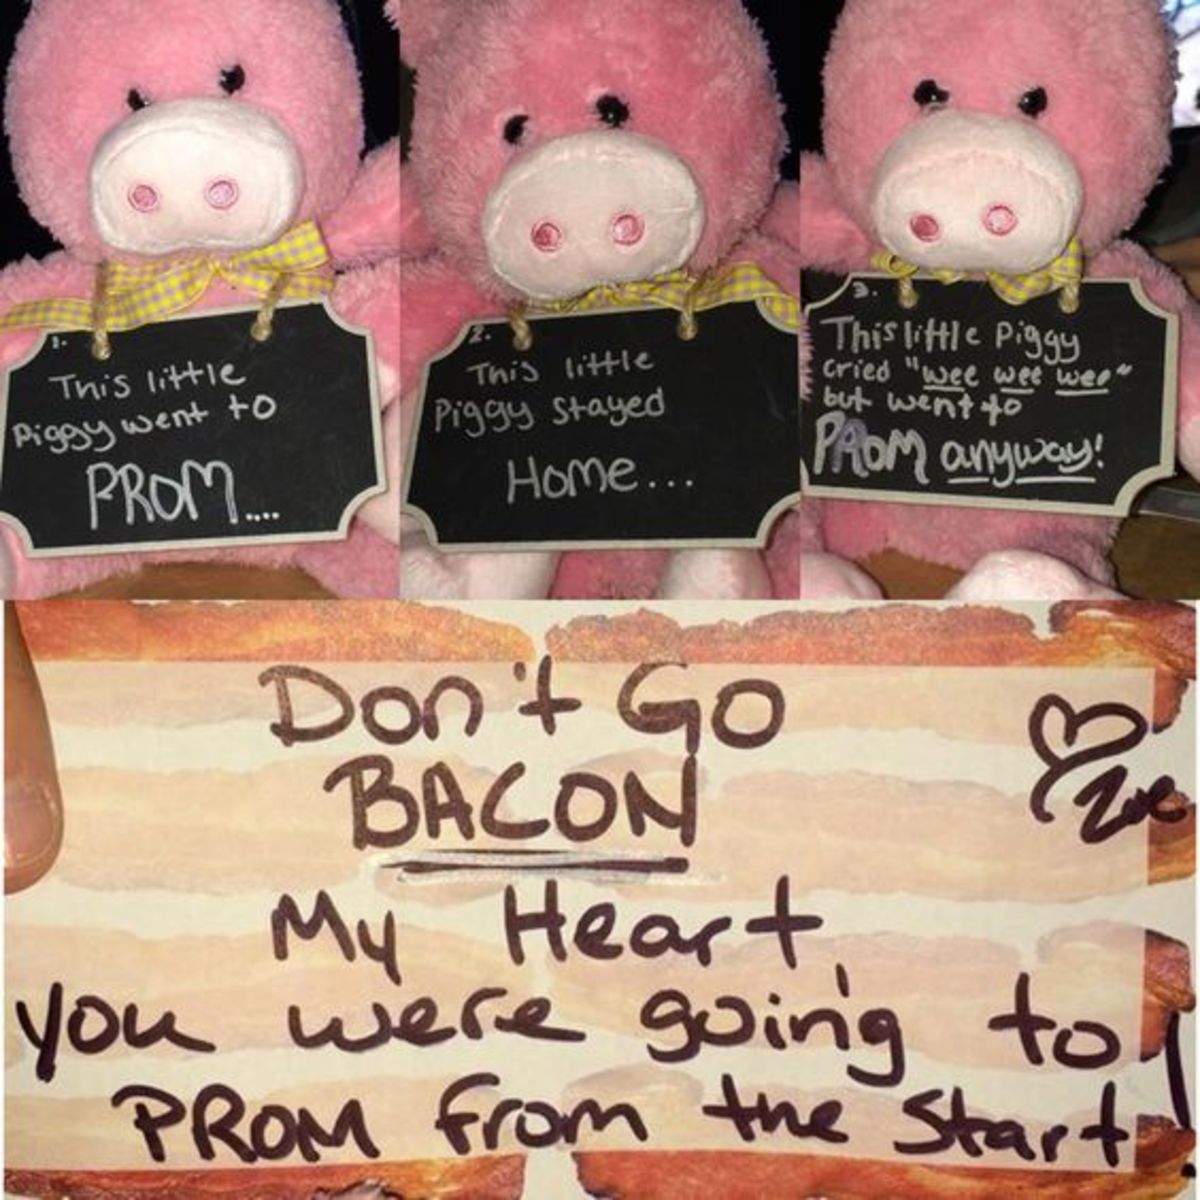 1.
This little
Piggy went to
PROM....
2.
This little
Piggy stayed
Home...
3.
This little Piggy
cried "wee wee wee"
but went to
PROM anyway!
Don't Go
BACON
My Heart,
you were going to
PROM from the Start!
♡ Zoe